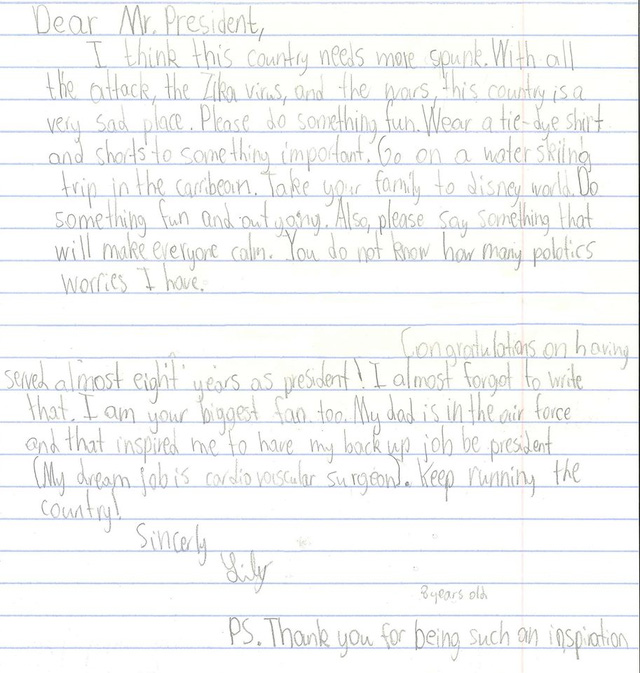 Dear Mr. President,
I think this country needs more spunk. With all
the attack, the Zika virus, and the wars, this country is a
very sad place. Please do something fun. Wear a tie-dye shirt
and shorts to something important. Go on a water skiing
trip in the carribean. Take your family to disney world. Do
something fun and out going. Also, please say something that
will make everyone calm. You do not know how many polotics
worries I have.
Congratulations on having
served almost eight years as president! I almost forgot to write
that. I am your biggest fan too. My dad is in the air force
and that inspired me to have my back up job be president
(My dream job is cardiovascular surgeon). Keep running the
country!
Sincerly
Lily
8 years old
PS. Thank you for being such an inspiration